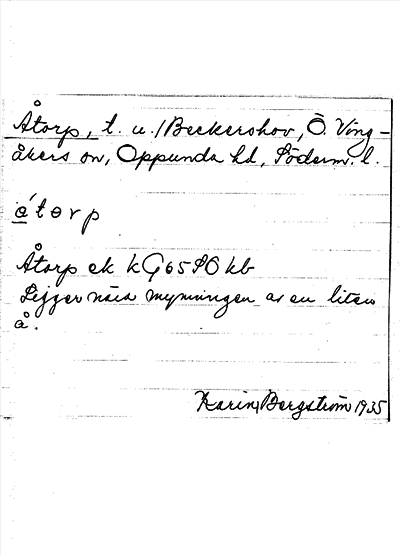 Åtorp, t. u. / Beckershov, Ö. Ving-
åkers sn, Oppunda hd, Söderm. l.
åtorp
Åtorp ek kG65SO kb
Ligger nära mynningen av en liten
å.
Karin Bergström 1935